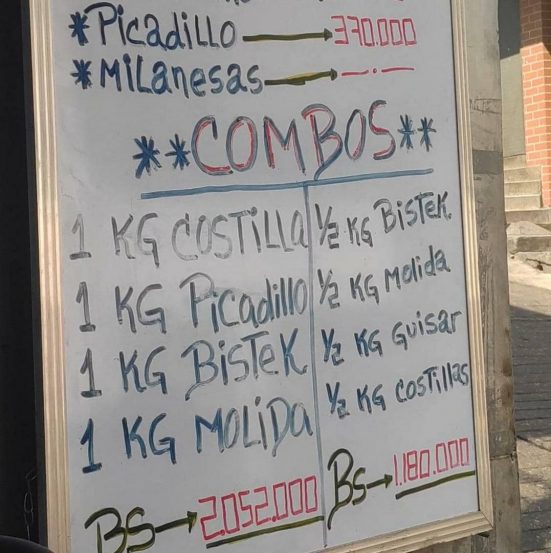 *Picadillo → 370.000
*Milanesas → —.—
**COMBOS**
1 KG COSTILLA
1 KG Picadillo
1 KG BISTEK
1 KG MOLIDA
BS → 2.052.000
½ KG BISTEK
½ KG Molida
½ KG GUISAR
½ KG COSTILLAS
BS → 1.180.000